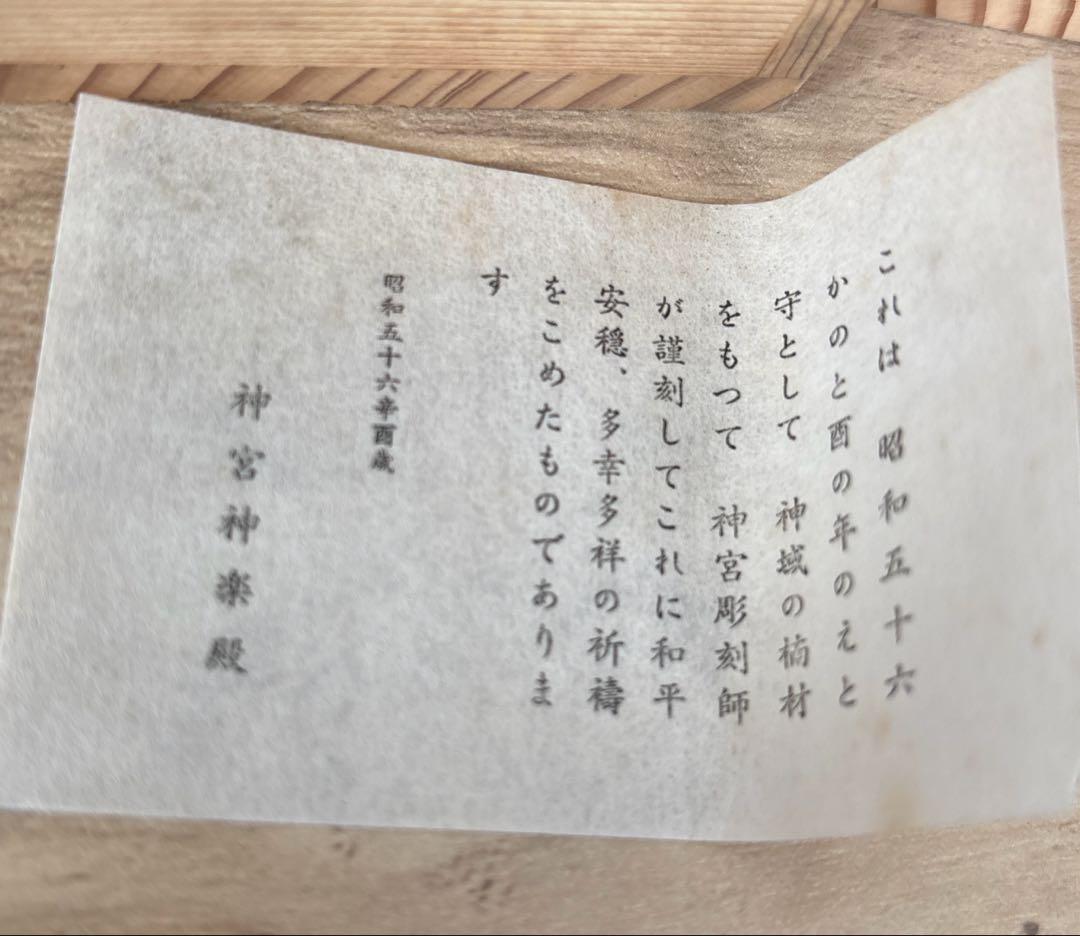 これは　昭和五十六
かのと酉の年のえと
守として　神域の楠材
をもつて　神宮彫刻師
が謹刻してこれに和平
安穏、多幸多祥の祈禱
をこめたものでありま
す
昭和五十六辛酉歳
神宮神楽殿